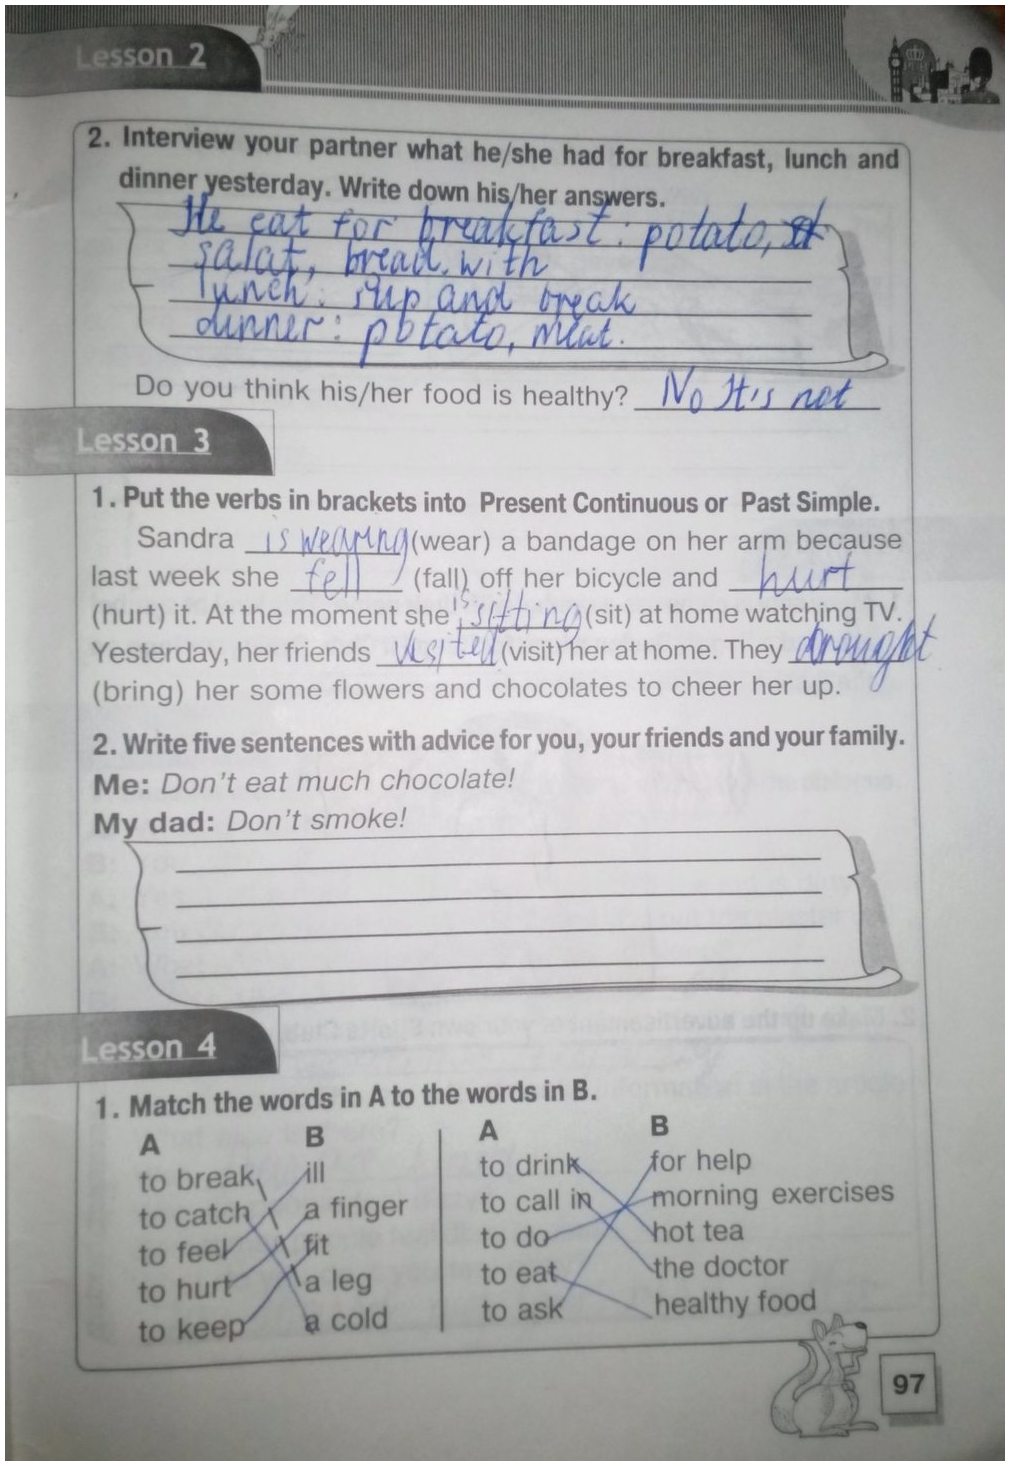 Lesson 2
2. Interview your partner what he/she had for breakfast, lunch and
dinner yesterday. Write down his/her answers.
He eat for breakfast: potato,
salat, bread, with
lunch: sup and break
dinner: potato, meat.
Do you think his/her food is healthy? No It is not
Lesson 3
1. Put the verbs in brackets into Present Continuous or Past Simple.
Sandra is wearing (wear) a bandage on her arm because
last week she fell (fall) off her bicycle and hurt
(hurt) it. At the moment she is sitting (sit) at home watching TV.
Yesterday, her friends visited (visit) her at home. They
(bring) her some flowers and chocolates to cheer her up.
2. Write five sentences with advice for you, your friends and your family.
Me: Don't eat much chocolate!
My dad: Don't smoke!
Lesson 4
1. Match the words in A to the words in B.
A B A B
to break ill to drink for help
to catch a finger to call in morning exercises
to feel fit to do hot tea
to hurt a leg to eat the doctor
to keep a cold to ask healthy food
97